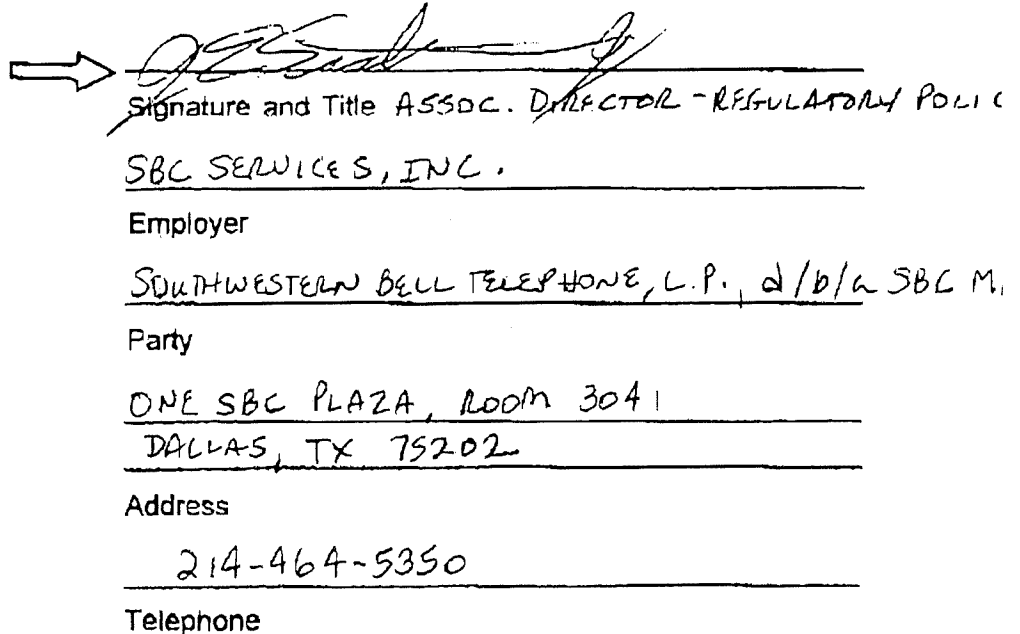 Signature and Title ASSOC. DIRECTOR - REGULATORY POLIC
SBC SERVICES, INC.
Employer
SOUTHWESTERN BELL TELEPHONE, L.P., d/b/a SBC M
Party
ONE SBC PLAZA, ROOM 3041
DALLAS, TX 75202
Address
214-464-5350
Telephone